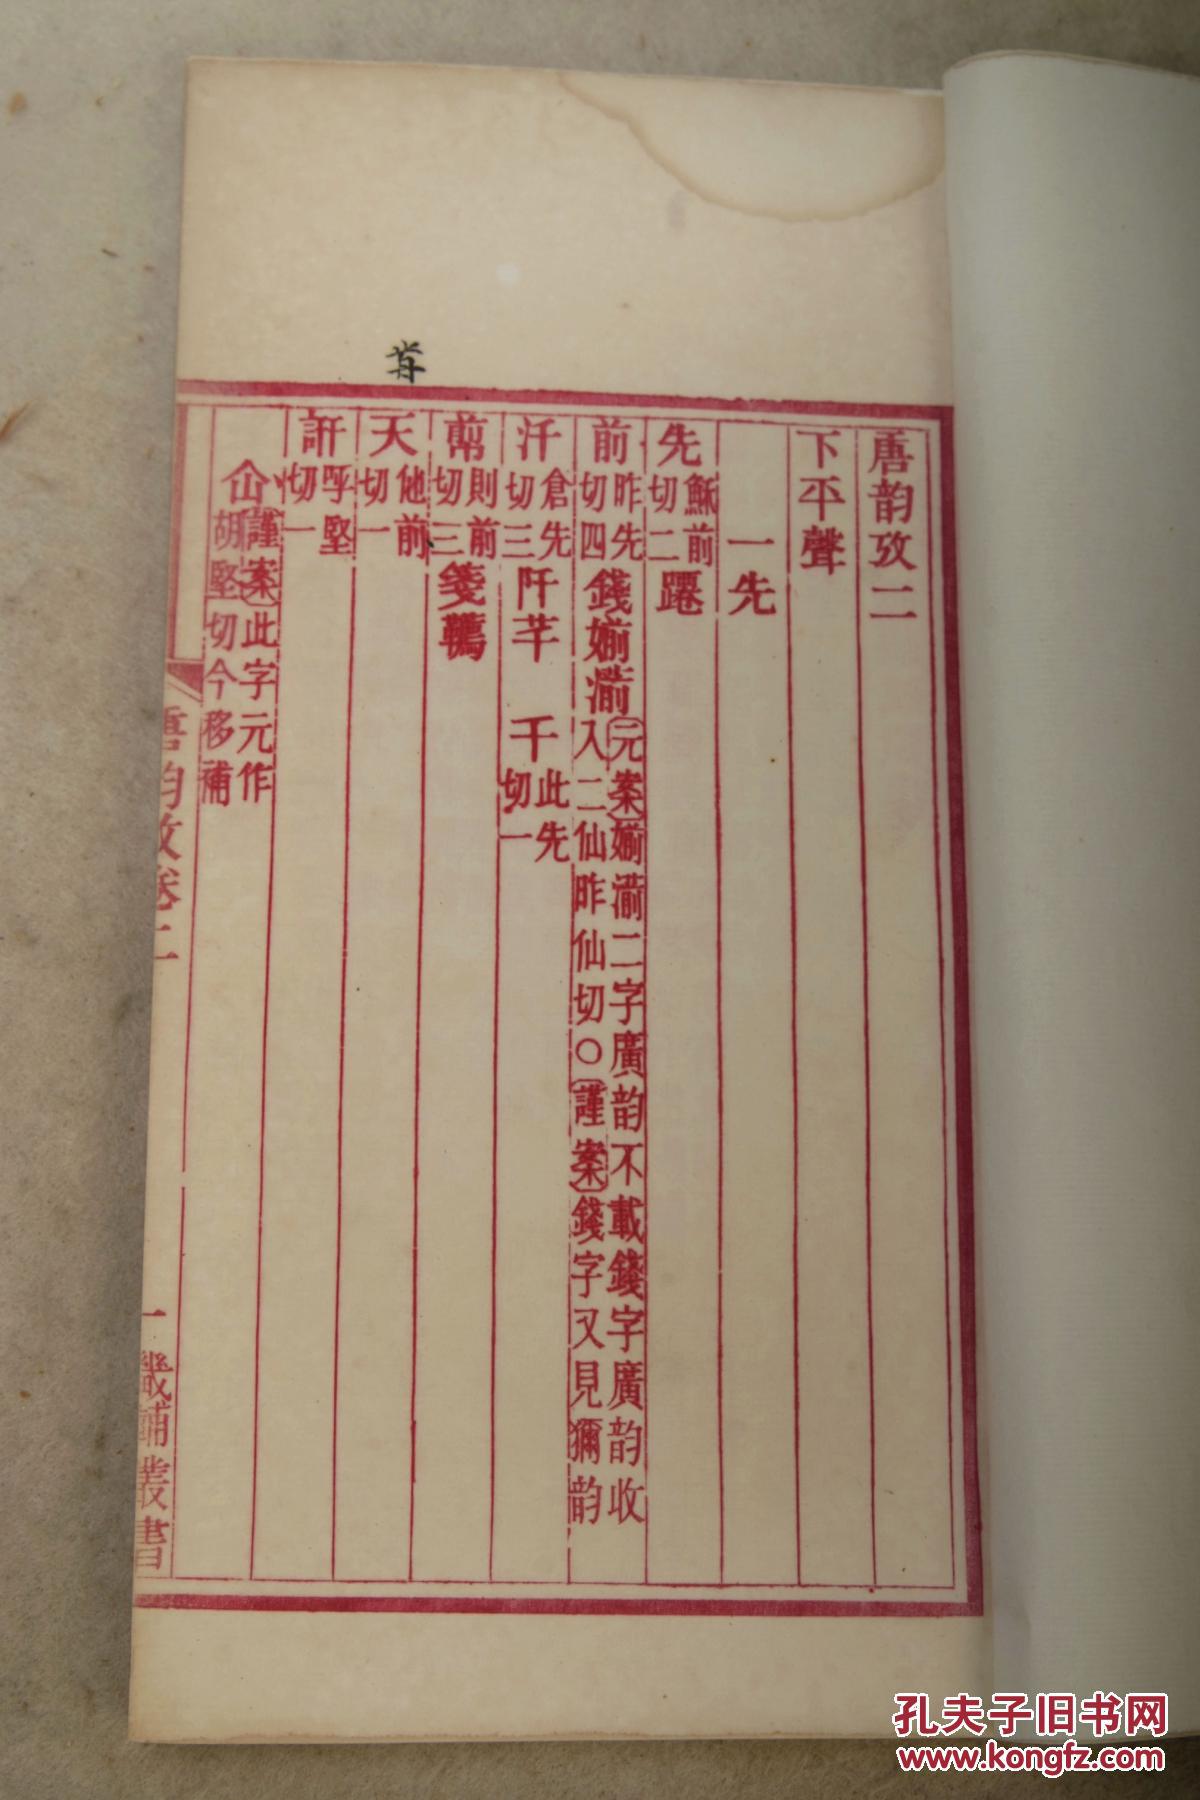 唐韵攷二
下平聲
一先
先穌前切二躚
前昨先切四錢媊湔元案媊湔二字廣韵不載錢字廣韵收入二仙昨仙切○謹案錢字又見獮韵
汘倉先切三阡芊 千此先切一
煎則前切三箋韉
天他前切一
訮呼堅切一
謹案此字元作胡堅切今移補
唐韵攷卷二
一
畿輔叢書
孔夫子旧书网
www.kongfz.com